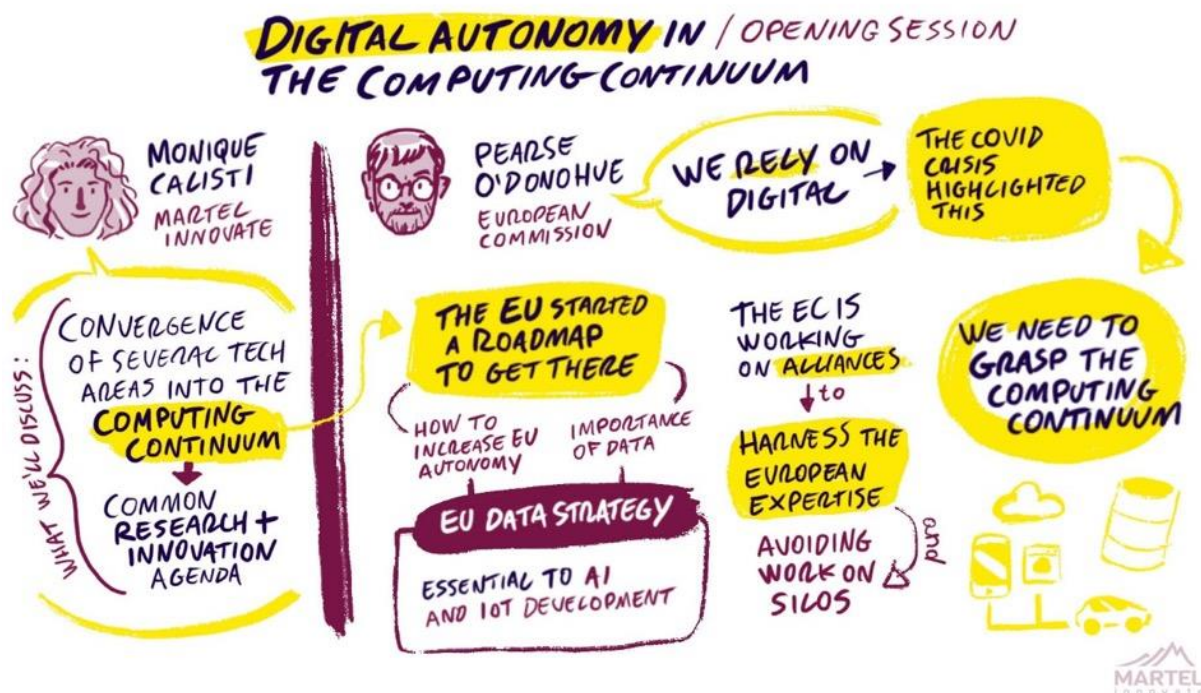 DIGITAL AUTONOMY IN / OPENING SESSION
THE COMPUTING CONTINUUM
MONIQUE
CALISTI
MARTEL
INNOVATE
WHAT WE'LL DISCUSS:
CONVERGENCE
OF SEVERAL TECH
AREAS INTO THE
COMPUTING
CONTINUUM
COMMON
RESEARCH +
INNOVATION
AGENDA
PEARSE
O'DONOHUE
EUROPEAN
COMMISSION
WE RELY ON
DIGITAL
THE COVID
CRISIS
HIGHLIGHTED
THIS
THE EU STARTED
A ROADMAP
TO GET THERE
HOW TO
INCREASE EU
AUTONOMY
IMPORTANCE
OF DATA
EU DATA STRATEGY
ESSENTIAL TO AI
AND IOT DEVELOPMENT
THE EC IS
WORKING
ON ALLIANCES
to
HARNESS THE
EUROPEAN
EXPERTISE
and
AVOIDING
WORK ON
SILOS
WE NEED TO
GRASP THE
COMPUTING
CONTINUUM
MARTEL